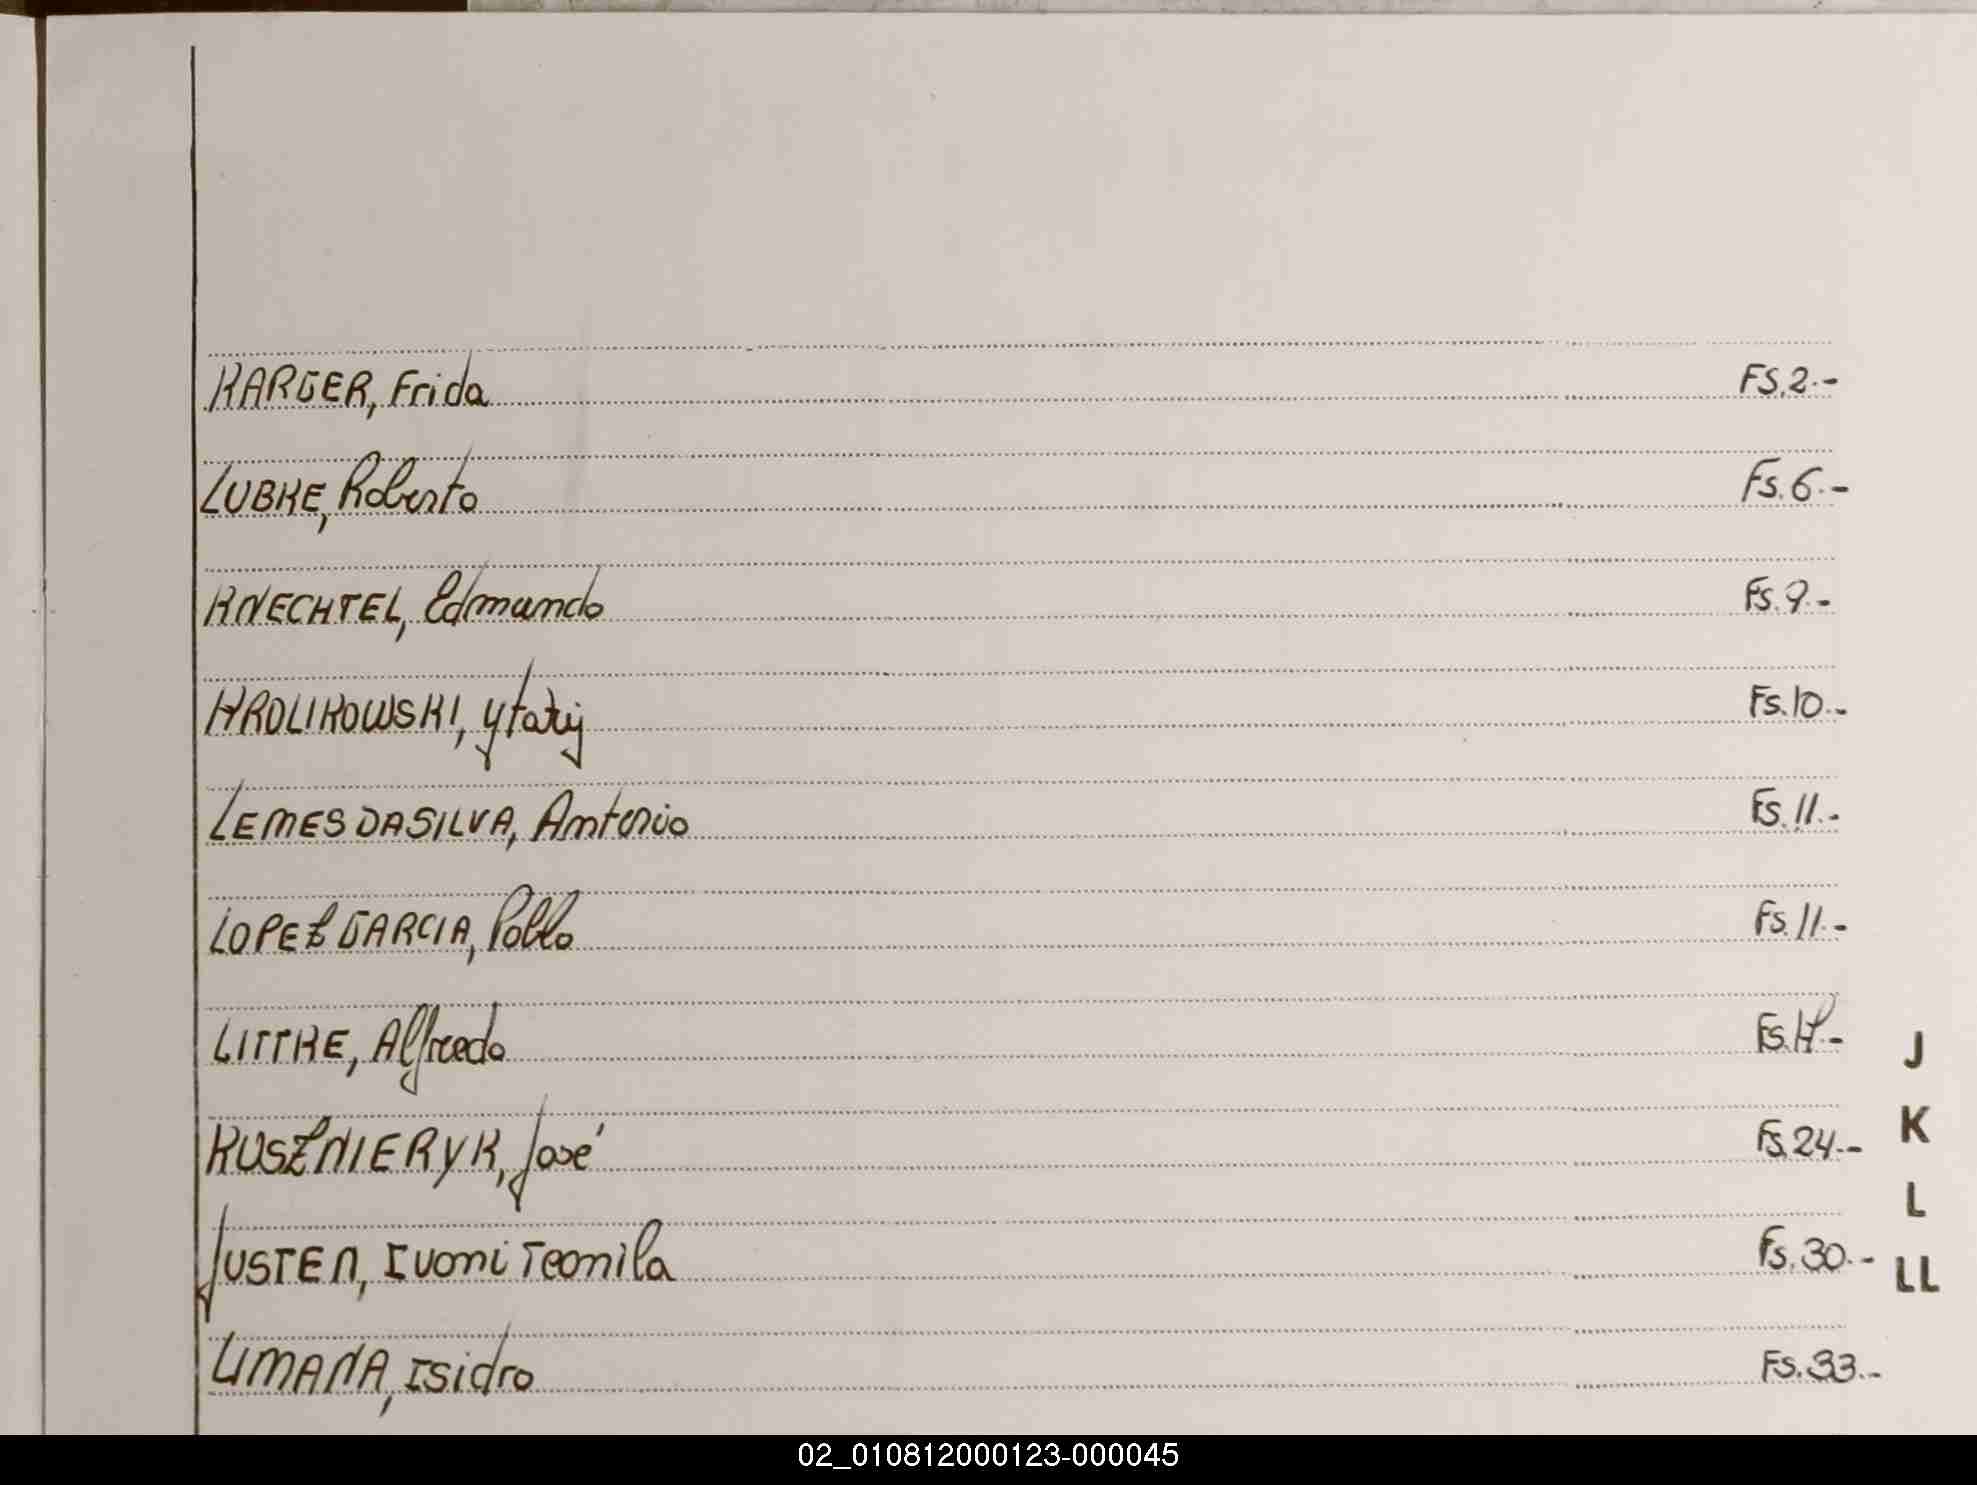 KARGER, Frida FS.2.-
LUBKE, Roberto Fs.6.-
KNECHTEL, Edmundo Fs.9.-
KROLIKOWSKI, Fs.10.-
LEMES DASILVA, Antonio Fs.11.-
LOPEZ GARCIA, Pablo Fs.11.-
LITTKE, Alfredo
J
KUSZNIERYK, José Fs.24.-
K
L
JUSTEN, Ivoni Teonila Fs.30.-
LL
LIMANA, Isidro Fs.33.-
02_010812000123-000045